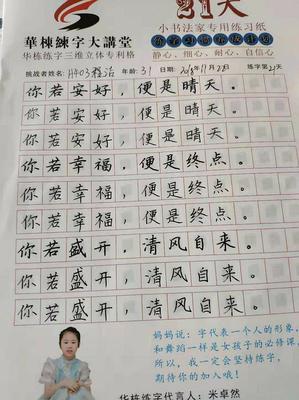 21天
華棟練字大講堂
小书法家专用练习纸
华栋练字三维立体专利格
静心、细心、耐心、自信心
挑战者姓名: 年龄: 31 日期: 2018年11月22日 练字第21天
你若安好,便是晴天。
你若安好,便是晴天。
你若安好,便是晴天。
你若幸福,便是终点。
你若幸福,便是终点。
你若幸福,便是终点。
你若盛开,清风自来。
你若盛开,清风自来。
你若盛开,清风自来。
妈妈说:字代表一个人的形象,
和舞蹈一样是女孩子的必修课,
所以,我一定会坚持练字,
期待你的加入哦!
华栋练字代言人:米卓然